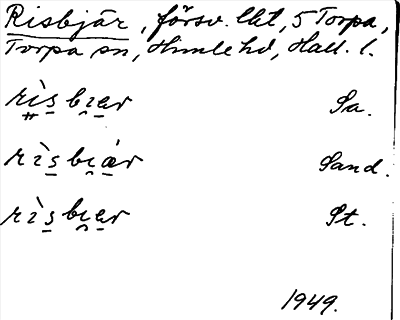 Risbjär, försv. lht, 5 Torpa,
Torpa sn, Himle hd, Hall. l.
rìsbi̯ar Sa.
rìsbi̯ár Sand.
rìsbi̯ar St.
1949.